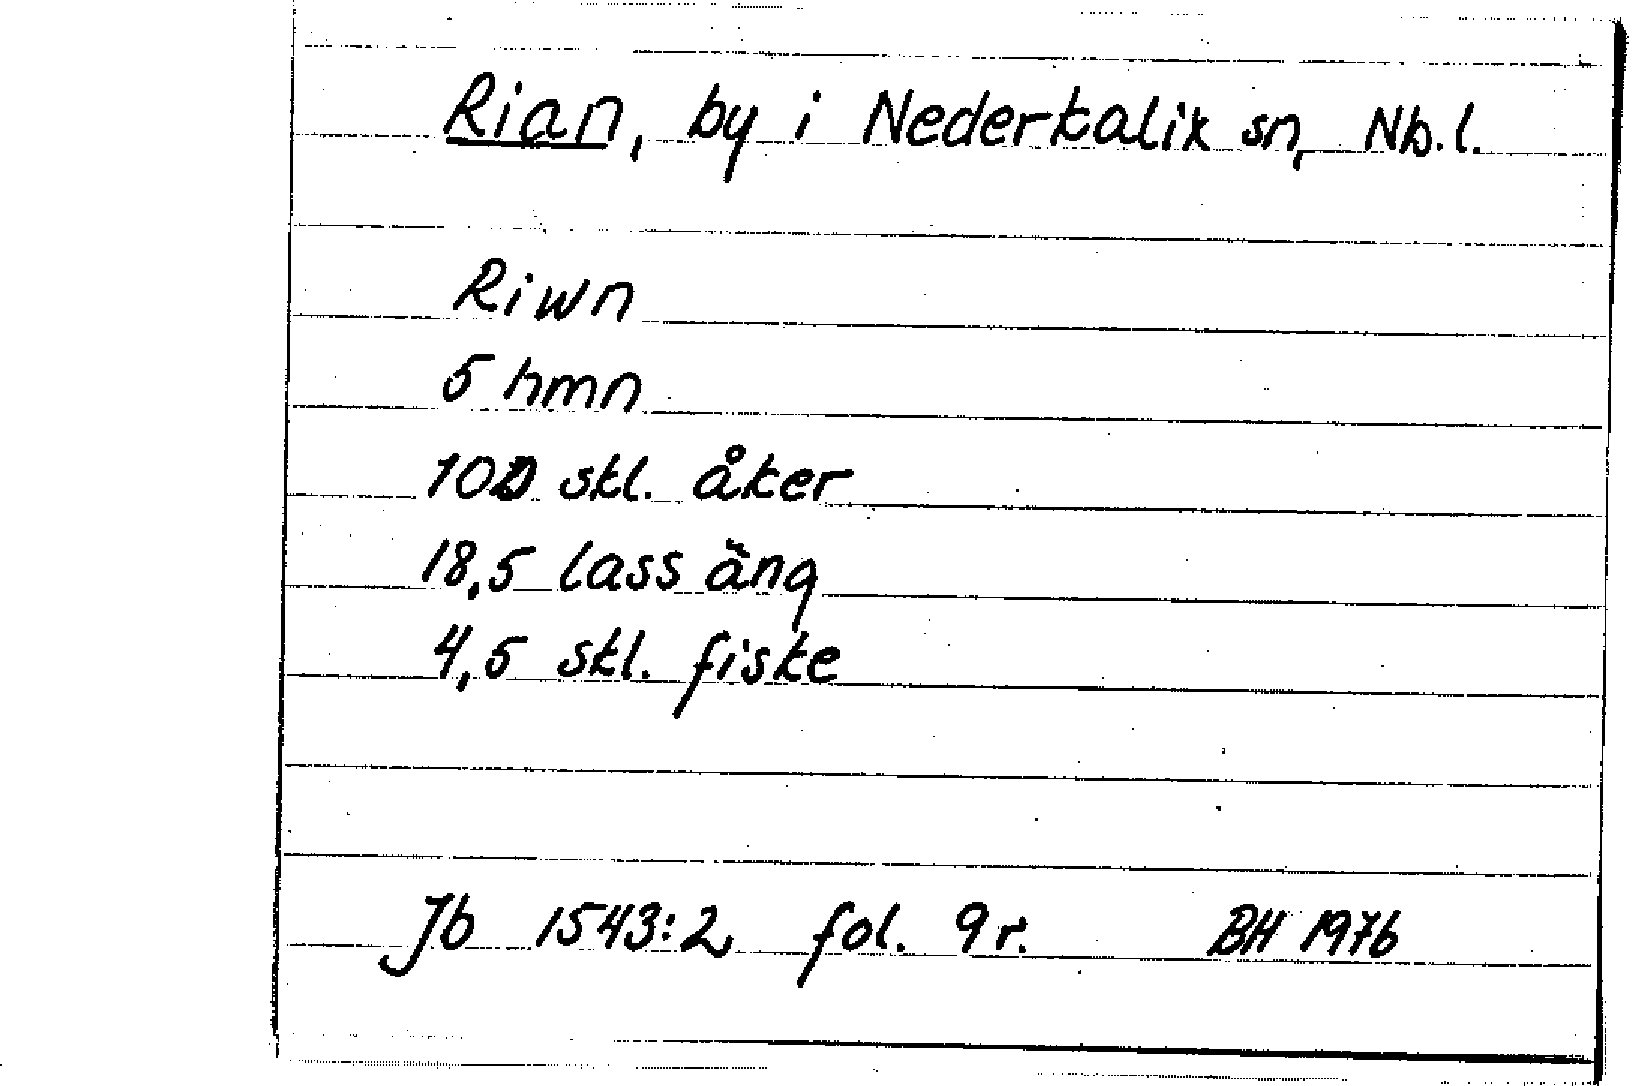 Rian, by i Nederkalix sn, Nb.l.
Riwn
5 hmn
skl. åker
18,5 lass äng
4,5 skl. fiske
Jb 1543:2 fol. 9 r. BH 1976